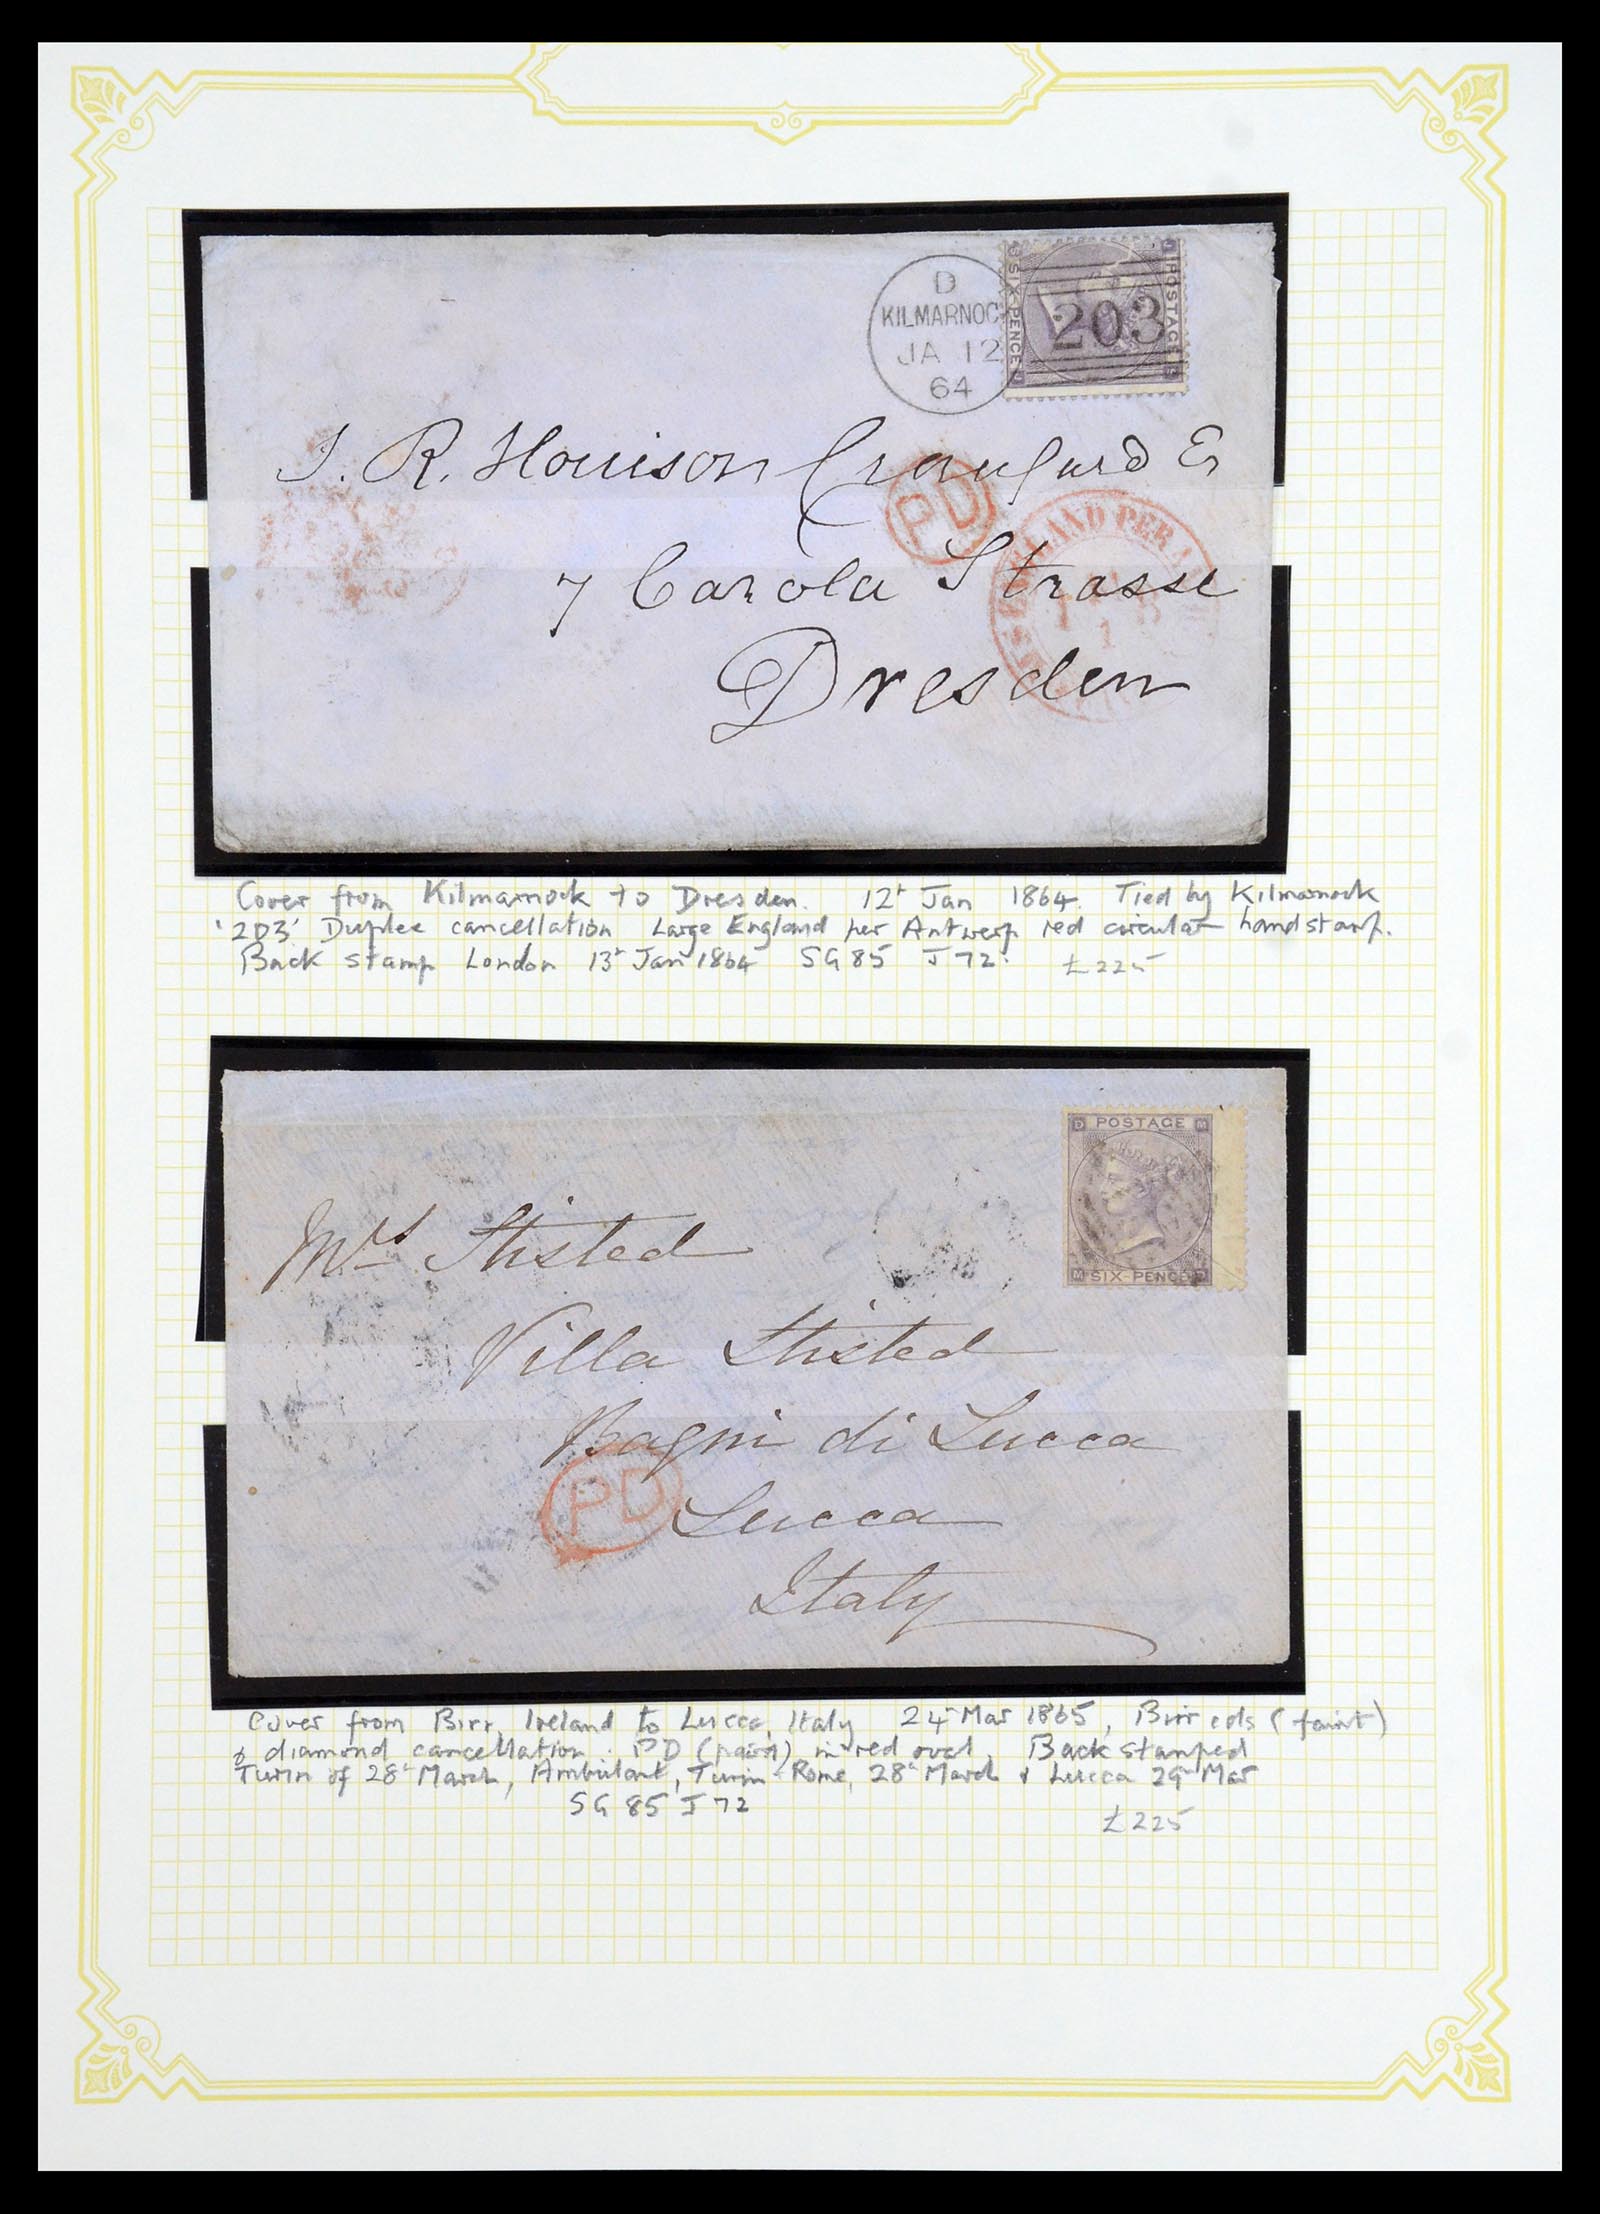 D
KILMARNOC
JA 12
64
SIX-PENCE
POSTAGE
203
J. R. Houison Craufurd Er
PD
7 Carola Strasse
LAND PER A
Dresden
Cover from Kilmarnock to Dresden. 12th Jan 1864. Tied by Kilmarnock
'203' Duplex cancellation Large England per Antwerp red circular handstamp.
Back stamp London 13th Jan 1864 SG 85 J 72. £225
D POSTAGE M
M SIX-PENCE D
Mrs Stisted
Villa Stisted
Bagni di Lucca
PD
Lucca
Italy
Cover from Birr, Ireland to Lucca, Italy 24th Mar 1865, Birr cds (faint)
& diamond cancellation. PD (paid) in red oval. Back stamped
Turin of 28th March, Ambulant, Turin - Rome, 28th March & Lucca 29th Mar
SG 85 J 72
£225